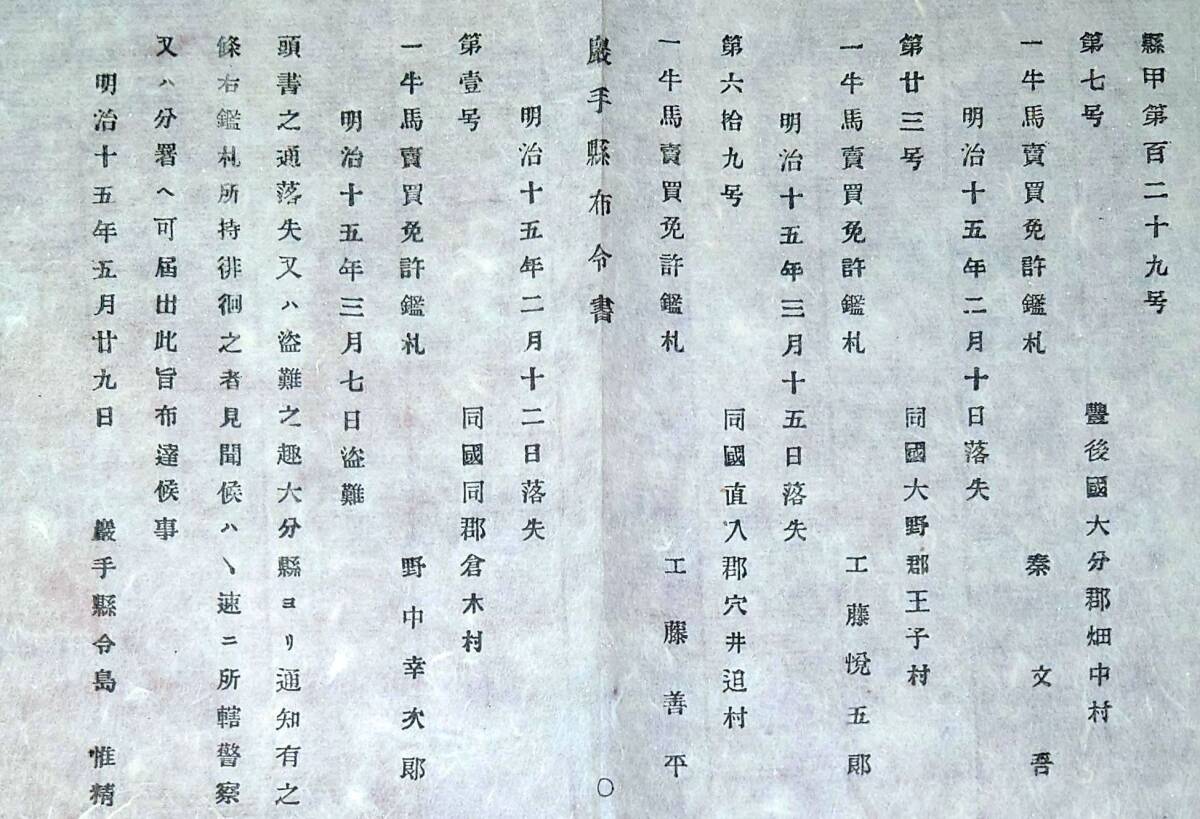 縣甲第百二十九号
第七号 豐後國大分郡畑中村
一牛馬賣買免許鑑札 秦文吾
明治十五年二月十日落失
第廿三号 同國大野郡王子村
一牛馬賣買免許鑑札 工藤悅五郞
明治十五年三月十五日落失
第六拾九号 同國直入郡穴井迫村
一牛馬賣買免許鑑札 工藤善平
巖手縣布令書 〇
明治十五年二月十二日落失
第壹号 同國同郡倉木村
一牛馬賣買免許鑑札 野中幸次郞
明治十五年三月七日盜難
頭書之通落失又ハ盜難之趣大分縣ヨリ通知有之
條右鑑札所持徘徊之者見聞候ハヽ速ニ所轄警察
又ハ分署ヘ可届出此旨布達候事
明治十五年五月廿九日 巖手縣令島惟精